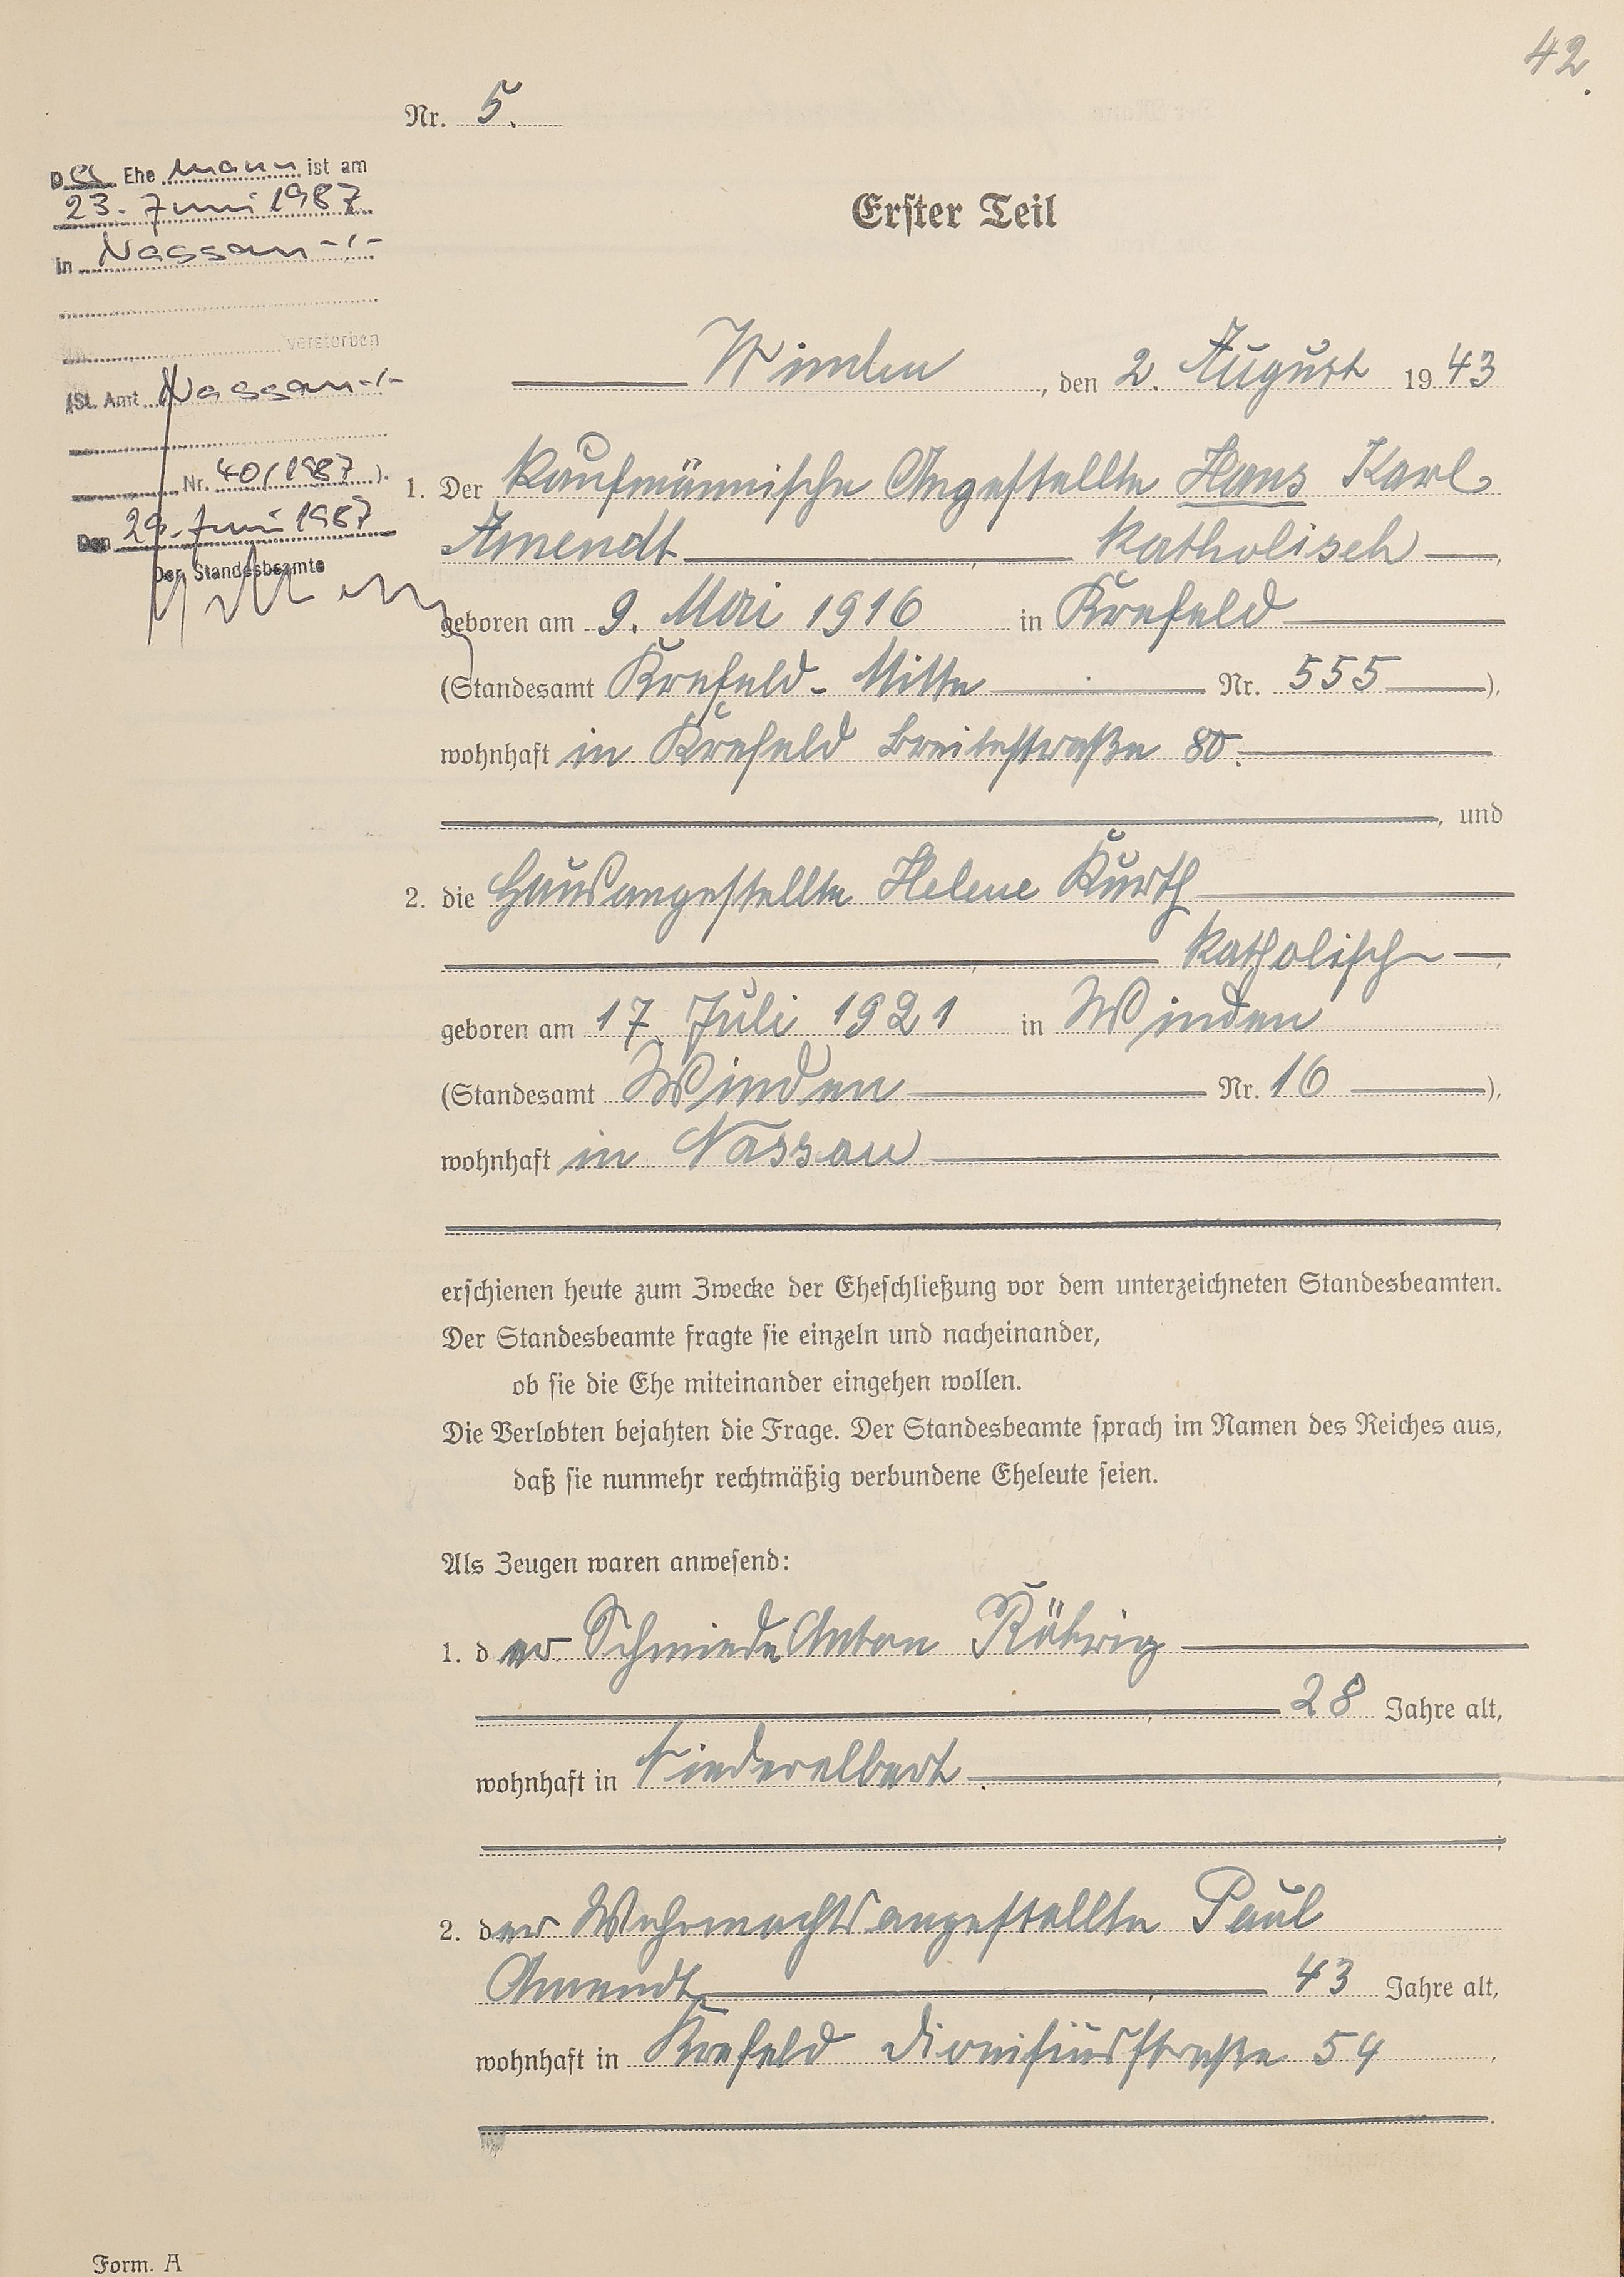 42.
Nr. 5.
Der Ehe mann ist am
23. Juni 1987
in Nassau -/-
verstorben
(St. Amt Nassau -/-
Nr. 40/1987 ).
Den 29. Juni 1987
Der Standesbeamte
Erster Teil
Winden, den 2. August 1943
1. Der kaufmännische Angestellte Hans Karl
Amendt katholisch,
geboren am 9. Mai 1916 in Krefeld
(Standesamt Krefeld-Mitte Nr. 555),
wohnhaft in Krefeld Breitestraße 80.
, und
2. die Hausangestellte Helene Kurth
katholisch,
geboren am 17. Juli 1921 in Winden
(Standesamt Winden Nr. 16),
wohnhaft in Nassau
erschienen heute zum Zwecke der Eheschließung vor dem unterzeichneten Standesbeamten.
Der Standesbeamte fragte sie einzeln und nacheinander,
ob sie die Ehe miteinander eingehen wollen.
Die Verlobten bejahten die Frage. Der Standesbeamte sprach im Namen des Reiches aus,
daß sie nunmehr rechtmäßig verbundene Eheleute seien.
Als Zeugen waren anwesend:
1. der Schmiede Anton Röhrig
28 Jahre alt,
wohnhaft in Niederelbert
2. der Wehrmachtsangestellte Paul
Amendt, 43 Jahre alt,
wohnhaft in Krefeld Dionisiusstraße 54
Form. A